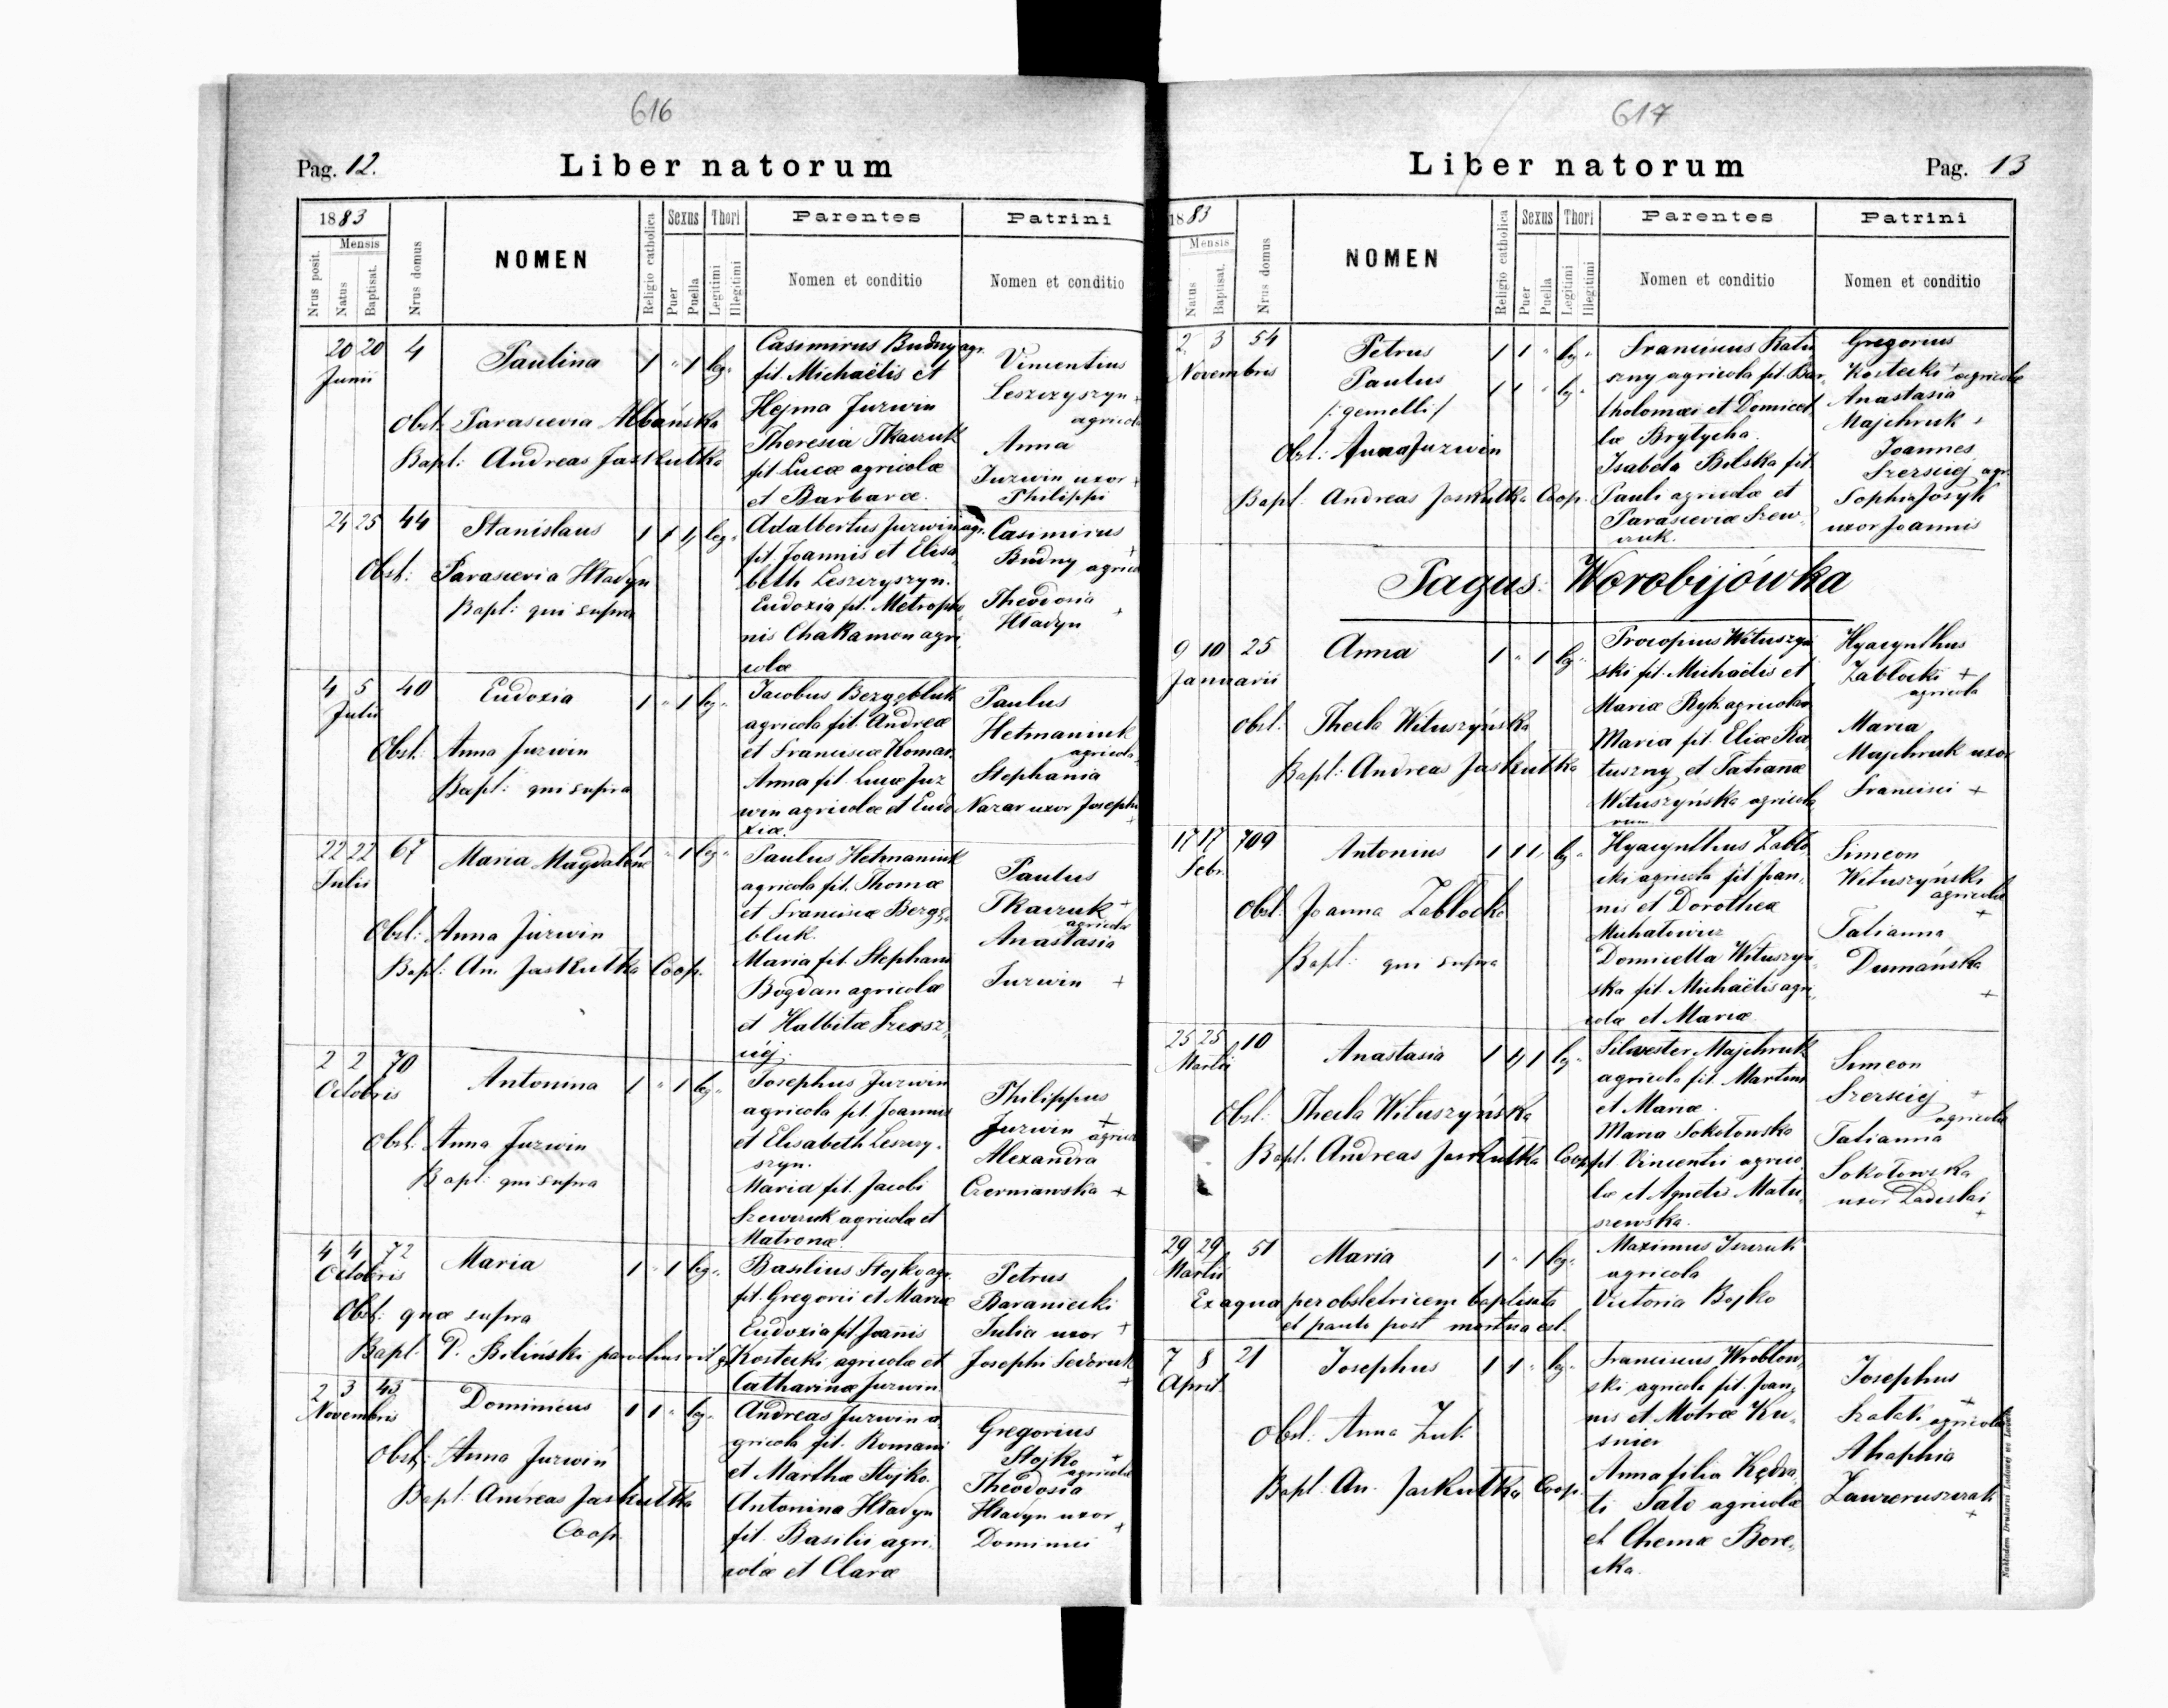 616
Pag. 12.
Liber natorum
1883
Nrus posit.
Mensis
Natus
Baptisat.
Nrus domus
NOMEN
Religio catholica
Sexus
Puer
Puella
Thori
Legitimi
Illegitimi
Parentes
Nomen et conditio
Patrini
Nomen et conditio
20 20 4
Junii
Paulina
1 " 1 leg.
Obst: Parascevia Albańska
Bapt: Andreas Jaskułka
Casimirus Budny agr.
fil. Michaëlis et
Hejma Jurwin
Theresia Tkaczuk
fil Lucæ agricolæ
et Barbaræ.
Vincentius
Leszczyszyn +
agricola
Anna
Jurwin uxor +
Philippi
24 25 44
Stanislaus
1 1 " leg.
Obst: Parascevia Hładyn
Bapt: qui supra
Adalbertus Jurwin agr.
fil. Joannis et Elisa
beth Leszczyszyn.
Eudoxia fil. Metropha
nis Chakamon agri
colæ
Casimirus
Budny agricola
Theodosia
Hładyn +
4 5 40
Julii
Eudoxia
1 " 1 leg.
Obst: Anna Jurwin
Bapt: qui supra
Jacobus Bezgębluk
agricola fil. Andreæ
et Franciscæ Komar.
Anna fil. Lucæ Jur
win agricolæ et Eudo
xiæ.
Paulus
Hetmaniuk
agricola
Stephania
Nazar uxor Josephi
+
22 22 67
Julii
Maria Magdalena
" 1 leg.
Obst: Anna Jurwin
Bapt: An. Jaskułka Coop.
Paulus Hetmaniuk
agricola fil. Thomæ
et Franciscæ Bezgę
bluk.
Maria fil. Stephani
Bogdan agricolæ
et Halbitæ
Paulus
Tkaczuk +
agricola
Anastasia
Jurwin +
2 2 70
Octobris
Antonina
1 " 1 leg.
Obst: Anna Jurwin
Bapt: qui supra
Josephus Jurwin
agricola fil. Joannis
et Elisabeth Leszczy
szyn.
Maria fil. Jacobi
Szewczuk agricolæ et
Matronæ.
Philippus
Jurwin +
agricola
Alexandra
Czerniawska +
4 4 72
Octobris
Maria
1 " 1 leg.
Obst: quæ supra
Bapt. P. Biliński parochus rit g
Basilius Stojko agr.
fil. Gregorii et Mariæ
Eudoxia fil Joañis
Kostecki agricolæ et
Catharinæ Jurwin.
Petrus
Baraniecki
Julia uxor +
Josephi Fedoruk
+
2 3 43
Novembris
Dominicus
1 1 " leg.
Obst: Anna Jurwin
Bapt: Andreas Jaskułka
Coop.
Andreas Jurwin a
gricola fil. Romani
et Marthæ Stojko.
Antonina Hładyn
fil. Basilii agri,
colæ et Claræ
Gregorius
Stojko +
agricola
Theodosia
Hładyn uxor +
Dominici
617
Liber natorum
Pag. 13
1883
Mensis
Natus
Baptisat.
Nrus domus
NOMEN
Religio catholica
Sexus
Puer
Puella
Thori
Legitimi
Illegitimi
Parentes
Nomen et conditio
Patrini
Nomen et conditio
2. 3 54
Novembris
Petrus
1 1 " leg.
Paulus
1 1 " leg.
/: gemelli /
Obst: Anna Jurwin
Bapt: Andreas Jaskułka Coop.
Franciscus Ratu
szny agricola fil. Bar,
tholomæi et Domicel
læ Brytycha.
Isabela Bilska fil.
Pauli agricolæ et
Parasceviæ Szew
czuk.
Gregorius
Kostecki + agricola
Anastasia
Majchruk +
Joannes
Szerszej agr.
Sophia Josyk
uxor Joannis
Pagus: Worobijówka
9 10 25
Januarii
Anna
1 " 1 leg.
Obst: Thecla Wituszyńska
Bapt: Andreas Jaskułka
Procopius Wituszyń
ski fil. Michaëlis et
Mariæ Ryk agricola
Maria fil. Eliæ Ra
tuszny et Tatianæ
Wituszyńska agricola
rum
Hyacynthus
Zabłocki +
agricola
Maria
Majchruk uxor
Francisci +
17 17 709
Febr.
Antonius
1 1 " leg.
Obst: Joanna Zabłocka
Bapt: qui supra
Hyacynthus Zabło
cki agricola fil Joan,
nis et Dorotheæ
Michałowicz
Domicella Wituszyń
ska fil. Michaëlis agri
colæ et Mariæ
Simeon
Wituszyński
agricola
+
Tatianna
Dumańska
+
25 25 10
Martii
Anastasia
1 " 1 leg.
Obst: Thecla Wituszyńska
Bapt. Andreas Jaskułka Coop.
Silvester Majchruk
agricola fil. Martini
et Mariæ.
Maria Sokołowska
fil. Vincentii agrico
læ et Agnetis Matu
szewska.
Simeon
Szerszej +
agricola
Tatianna
Sokołowska
uxor Ladislai
+
29 29 51
Martii
Maria
1 " 1 leg.
Ex aqua per obstetricem baptisata
et paulo post mortua est.
Maximus
agricola
Victoria Bojko
7 8 21
April.
Josephus
1 1 " leg.
Obst: Anna Żuk
Bapt: An. Jaskułka Coop.
Franciscus Wróblew,
ski agricola fil. Joan,
nis et Motræ Ku,
śnier
Anna filia Kędra,
ti Sato agricolæ
et Chemæ Bore,
cka.
Josephus
+
agricola
Ahaphia
+
Nakładem Drukarni Ludowej we Lwowie